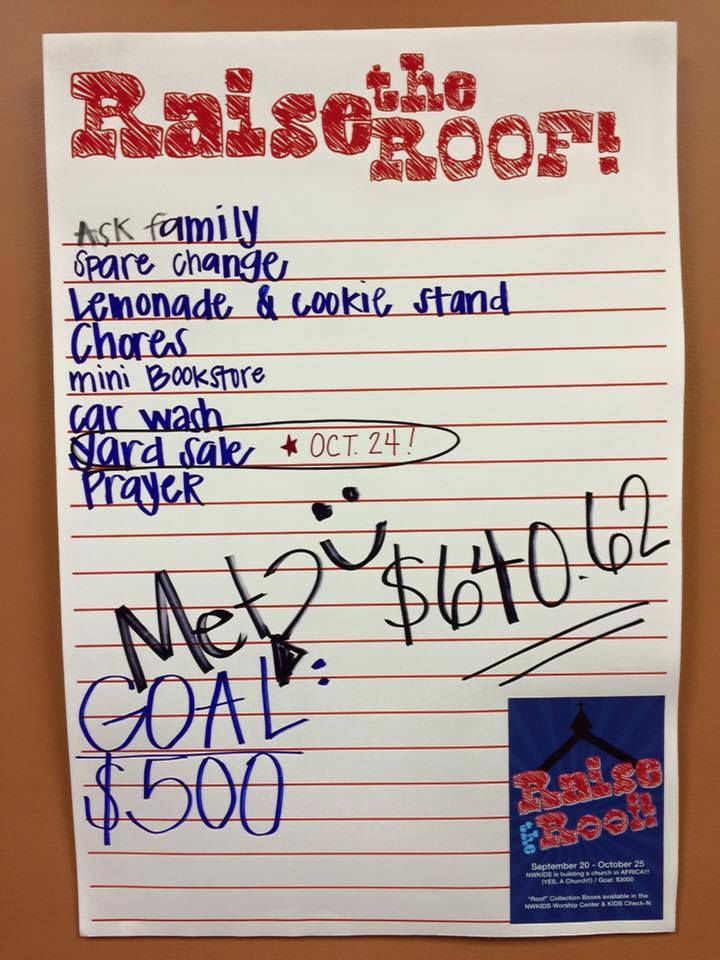 Raise the ROOF!
Ask family
Spare change
Lemonade & cookie stand
Chores
mini Bookstore
car wash
yard sale ★ OCT. 24!
Prayer
Met $640.62
GOAL:
$500
Raise
the Roof!
September 20 - October 25
NWKIDS is building a church in AFRICA!!!
(YES, A Church!!) / Goal: $3000
"Roof" Collection Boxes available in the
NWKIDS Worship Center & KIDS Check-N